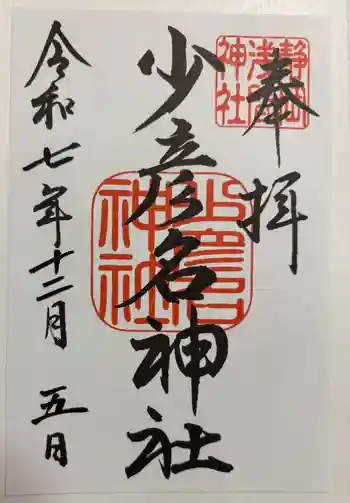 奉拝
静岡
浅間
神社
少彦名神社
令和七年十二月 五日